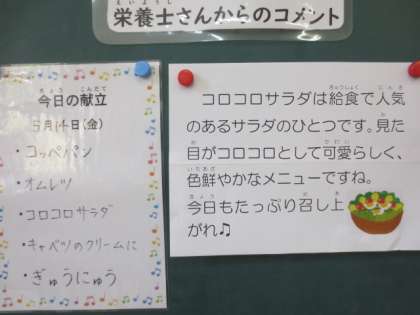 栄養士さんからのコメント
今日の献立
5月14日(金)
・コッペパン
・オムレツ
・コロコロサラダ
・キャベツのクリームに
・ぎゅうにゅう
コロコロサラダは給食で人気
のあるサラダのひとつです。見た
目がコロコロとして可愛らしく、
色鮮やかなメニューですね。
今日もたっぷり召し上
がれ♫